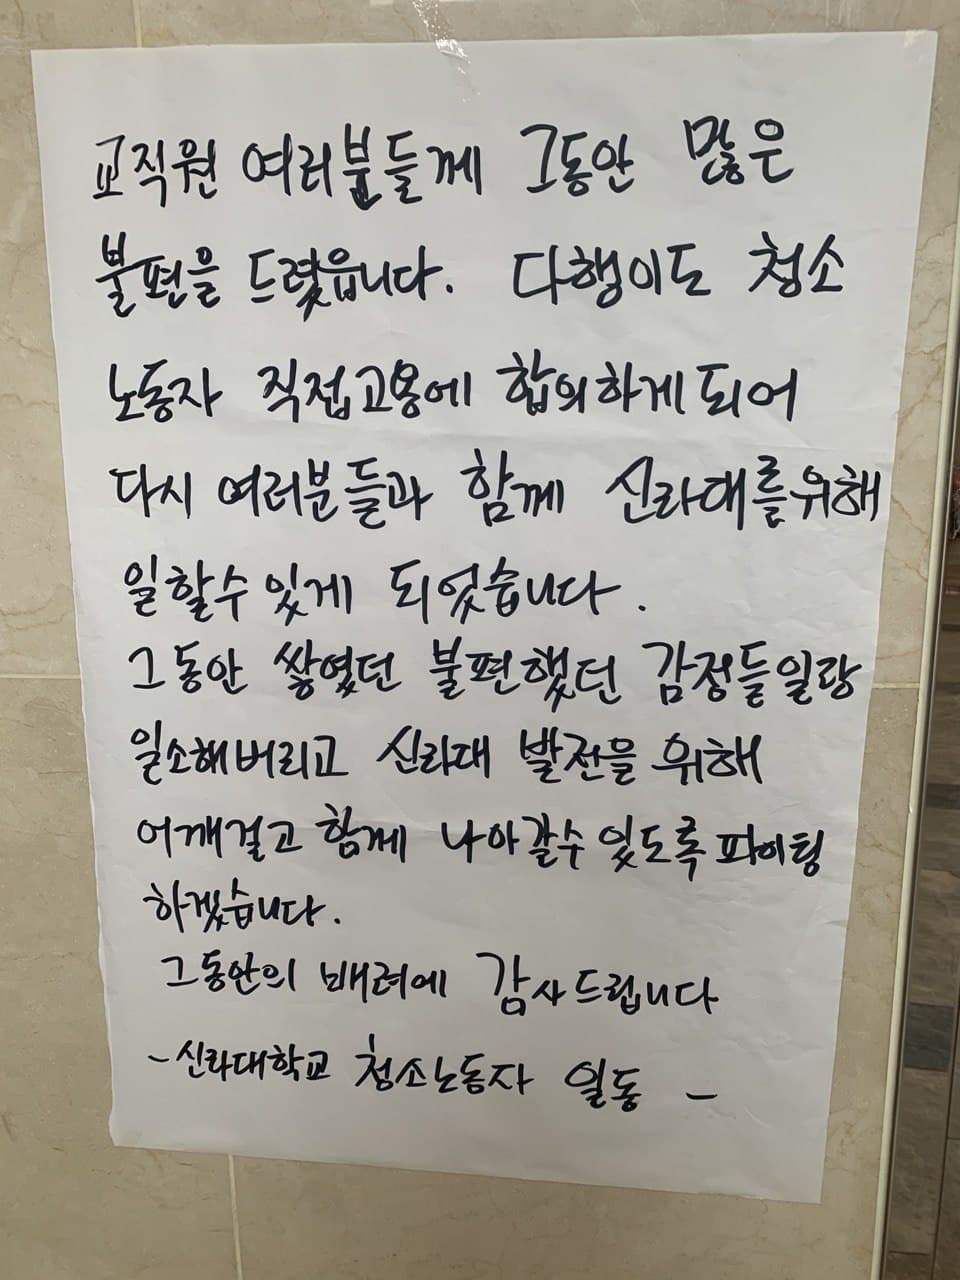 교직원 여러분들께 그동안 많은
불편을 드렸읍니다. 다행이도 청소
노동자 직접고용에 합의하게되어
다시 여러분들과 함께 신라대를위해
일할수있게 되었습니다.
그동안 쌓였던 불편했던 감정들일랑
일소해버리고 신라대 발전을 위해
어깨걸고 함께 나아갈수있도록 파이팅
하겠습니다.
그동안의 배려에 감사드립니다
- 신라대학교 청소노동자 일동 -